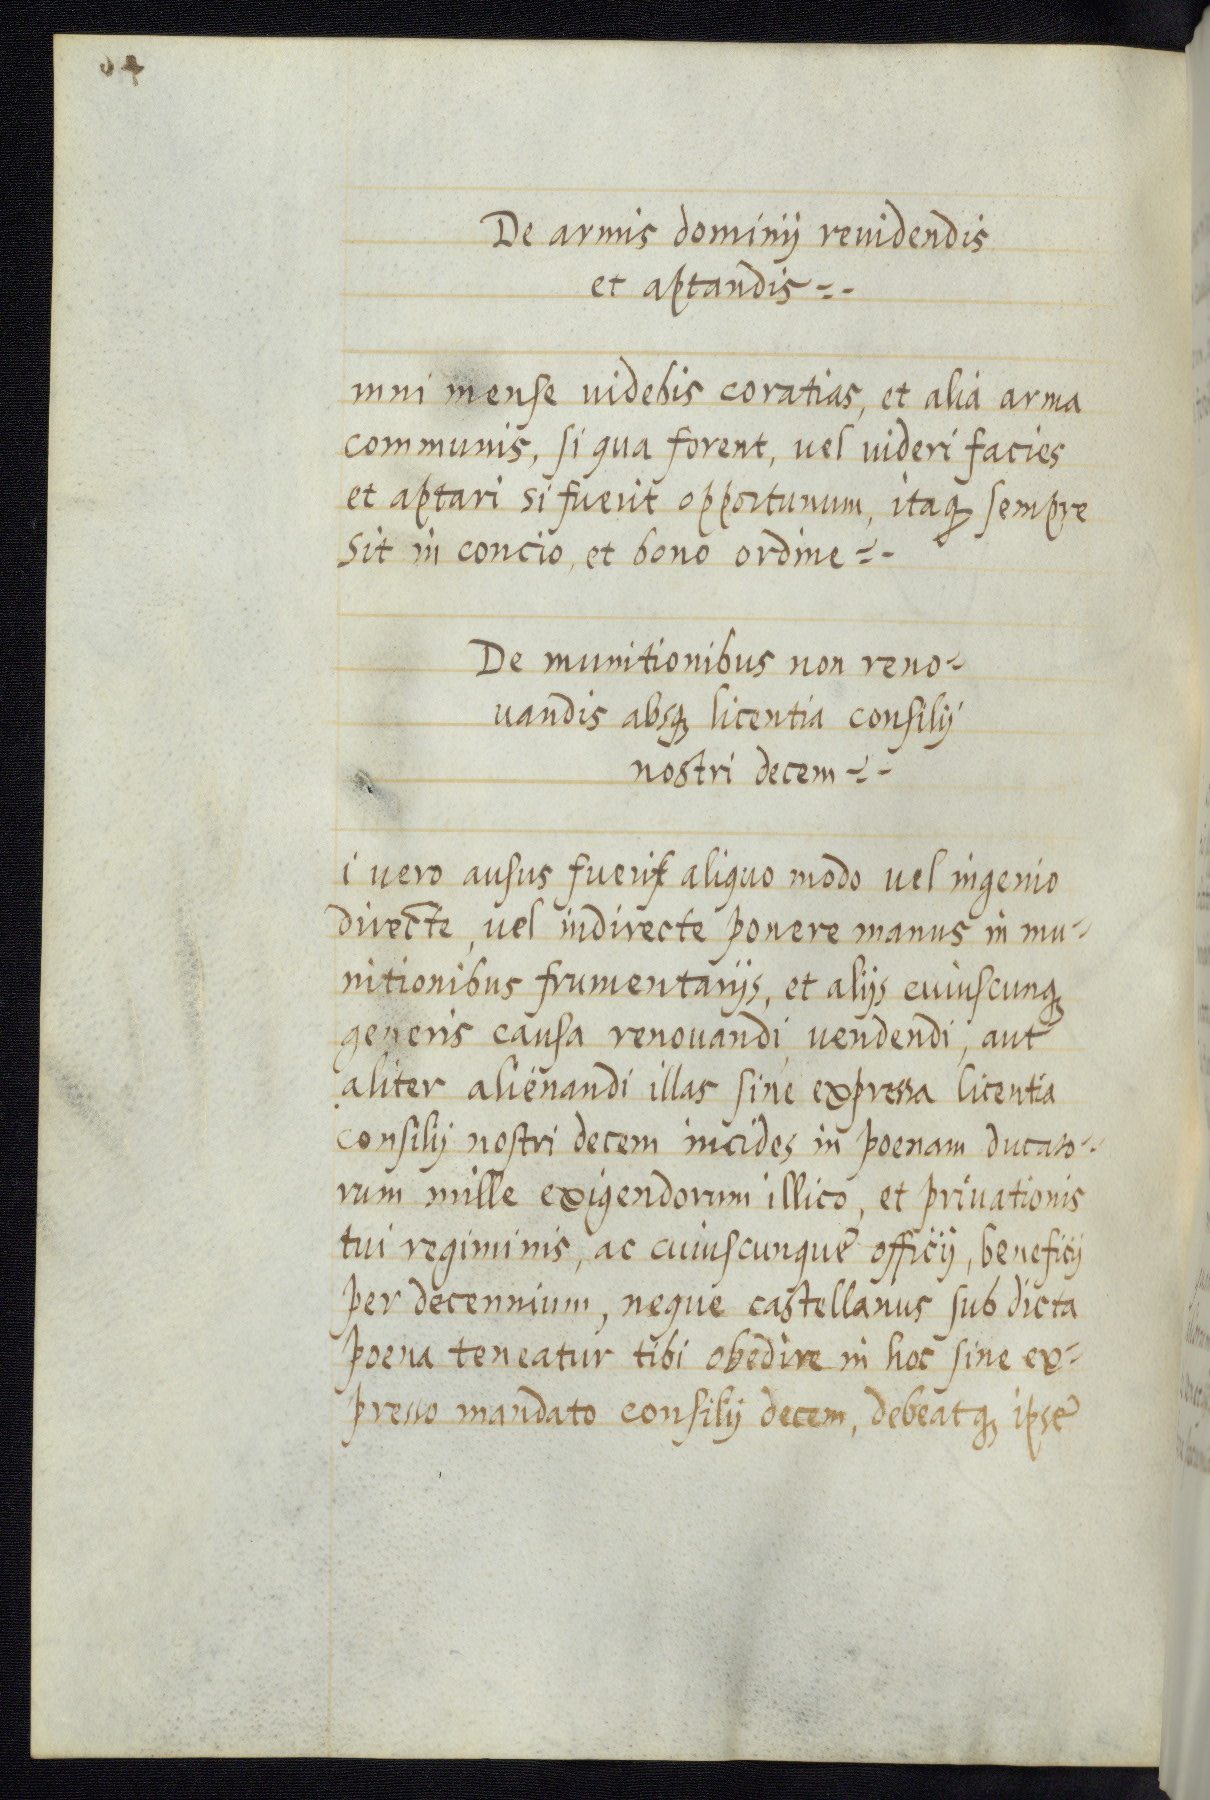 De armis dominij reuidendis
et aptandis
mni mense videbis coratias, et alia arma
communis, si qua forent, vel videri facies
et aptari si fuerit opportunum, itaq; sempre
sit in concio, et bono ordine
De munitionibus non reno-
uandis absq; licentia consilij
nostri decem
i vero ausus fuerit aliquo modo vel ingenio
directe, vel indirecte ponere manus in mu-
nitionibus frumentarijs, et alijs cuiuscunq;
generis causa renouandi vendendi, aut
aliter alienandi illas sine expressa licentia
consilij nostri decem incides in poenam ducato-
rum mille exigendorum illico, et priuationis
tui regiminis, ac cuiuscunque officij, beneficij
per decennium, neque castellanus sub dicta
poena teneatur tibi obedire in hoc sine ex-
presso mandato consilij decem, debeatq; ipse